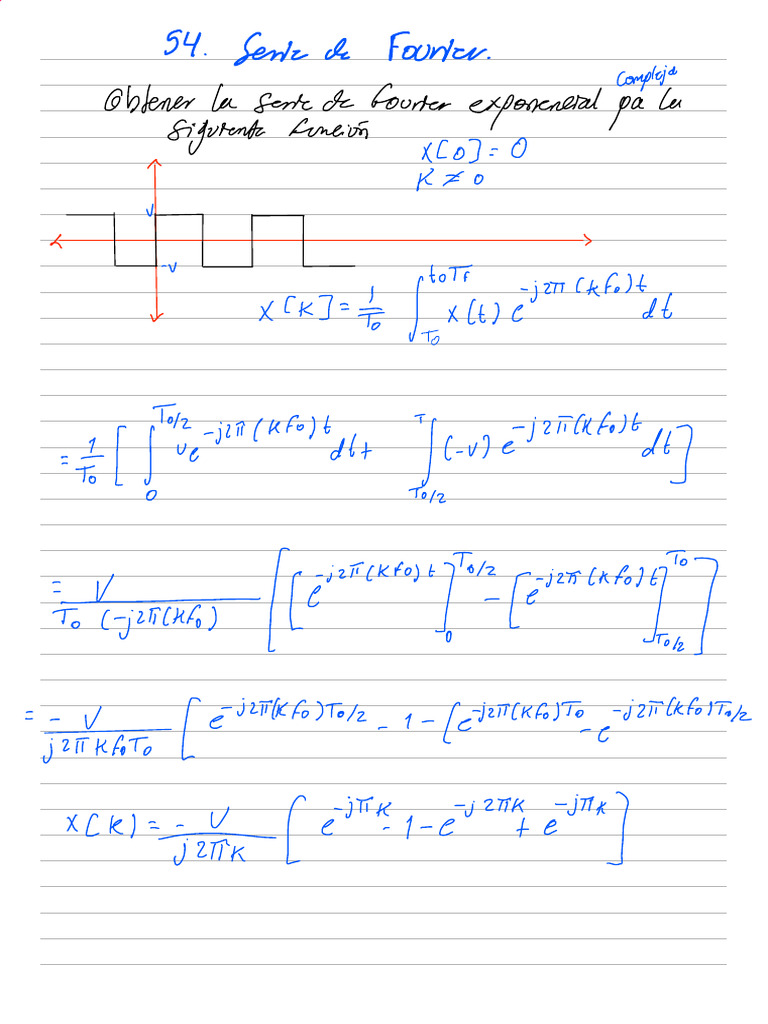 54. Serie de Fourier.
Compleja
Obtener la serie de Fourier exponencial pa la
siguiente función
X[0] = 0
K ≠ 0
V
-V
X[K] = 1/T₀ ∫_{T₀}^{t₀T_f} X(t) e^{-j2π(kf₀)t} dt
= 1/T₀ [ ∫_0^{T₀/2} ve^{-j2π(kf₀)t} dt + ∫_{T₀/2}^{T} (-v) e^{-j2π(kf₀)t} dt ]
= V/(T₀ (-j2π(kf₀)) [ [e^{-j2π(kf₀)t}]_0^{T₀/2} - [e^{-j2π(kf₀)t}]_{T₀/2}^{T₀} ]
= -V/(j2πkf₀T₀) [ e^{-j2π(kf₀)T₀/2} - 1 - [e^{-j2π(kf₀)T₀} - e^{-j2π(kf₀)T₀/2}
X[K) = -V/(j2πK) [ e^{-jπK} - 1 - e^{-j2πK} + e^{-jπK} ]